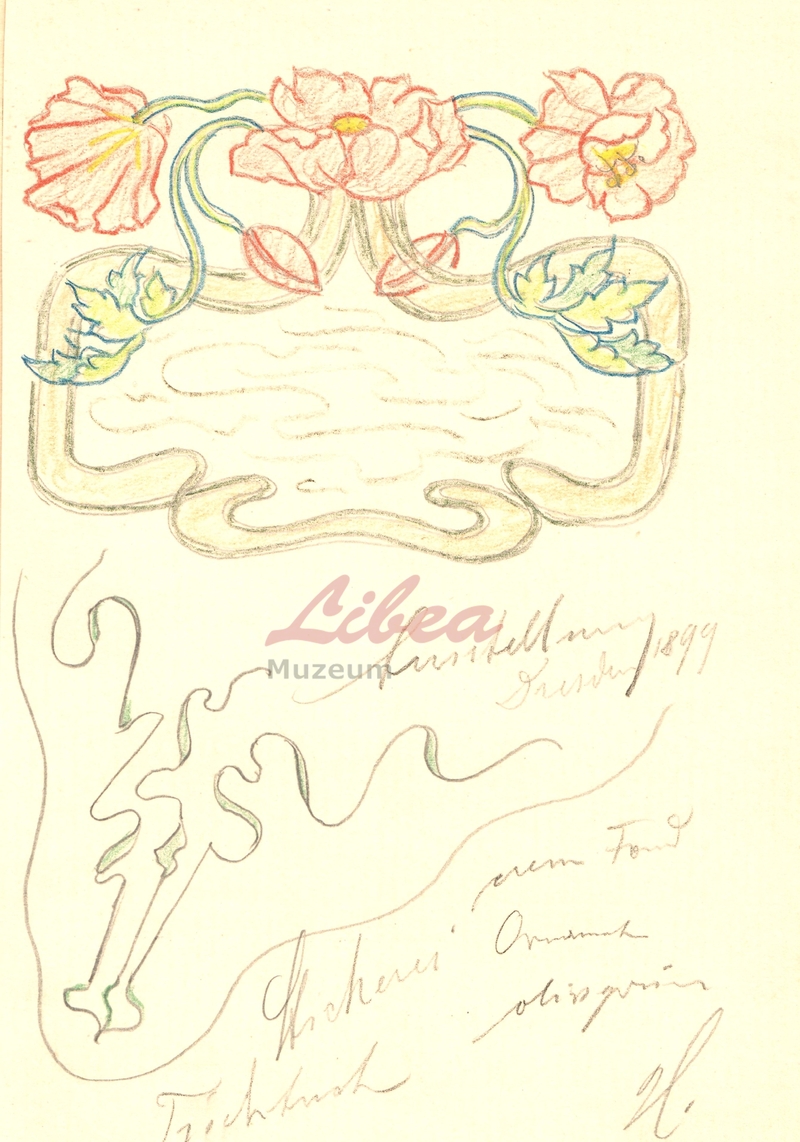 Libea
Muzeum
Ausstellung
Dresden 1899
crem Fond
Ornament
Stickerei
olivgrün
Tischtuch
H.